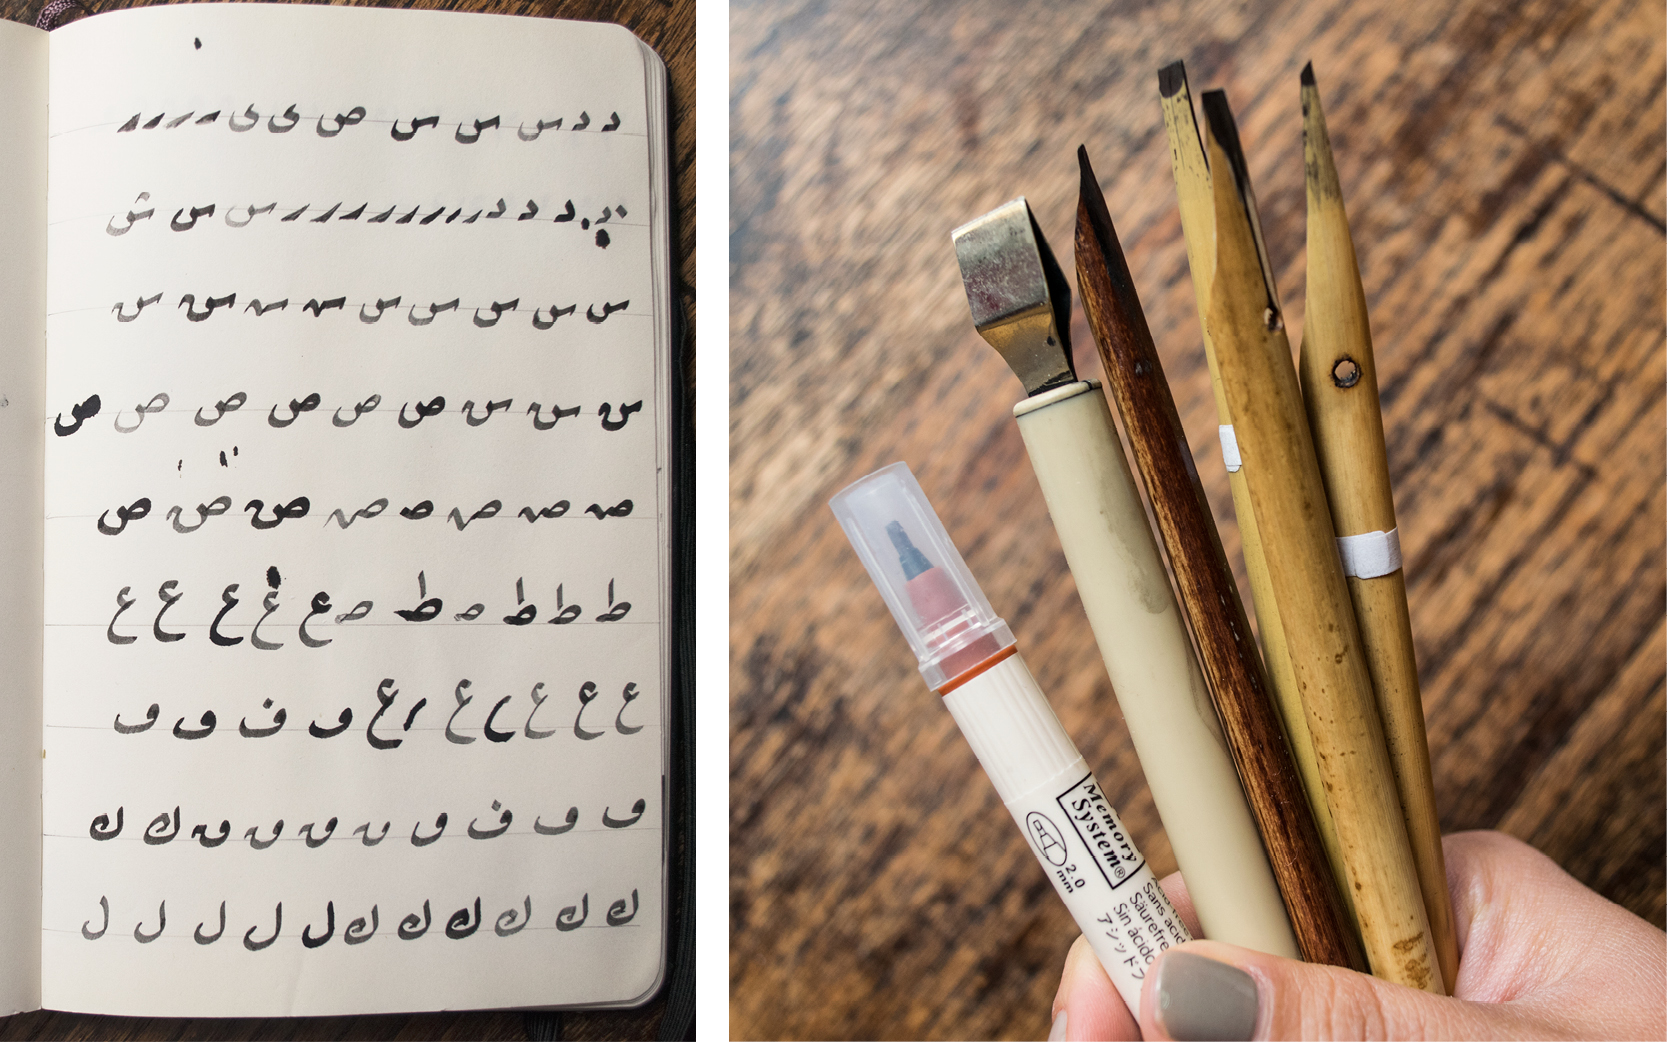 د د س س س ص ى ى
د د د س س ش
س س س س س س س
س س س ص ص ص ص ص ص
ص ص ص ص ص ص ص ص
ط ط ط ص ط ص ع ع ع ع ع
ع ع ع ع ع ڡ ف ڡ ڡ
ڡ ڡ ف ڡ ڡ ڡ ڡ ڡ ك ك
ك ك ك ك ك ك ل ل ل ل ل
Memory
System®
2.0
mm
Sans acid
Säurefre
Sin ácido
アシッドフ